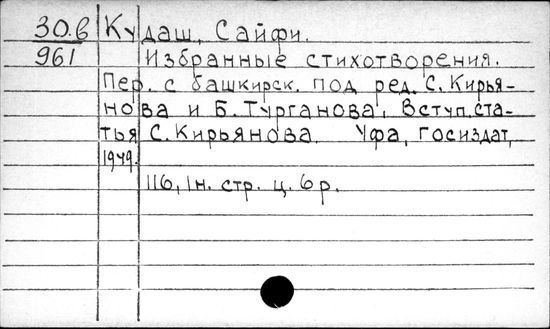 30.6 Кудаш, Сайфи.
961 Избранные стихотворения.
Пер. с башкирск. под ред. С. Кирья-
нова и Б. Турганова, Вступ. ста-
тья С. Кирьянова. Уфа, Госиздат,
1949.
116, 1н. стр. ц. 6р.